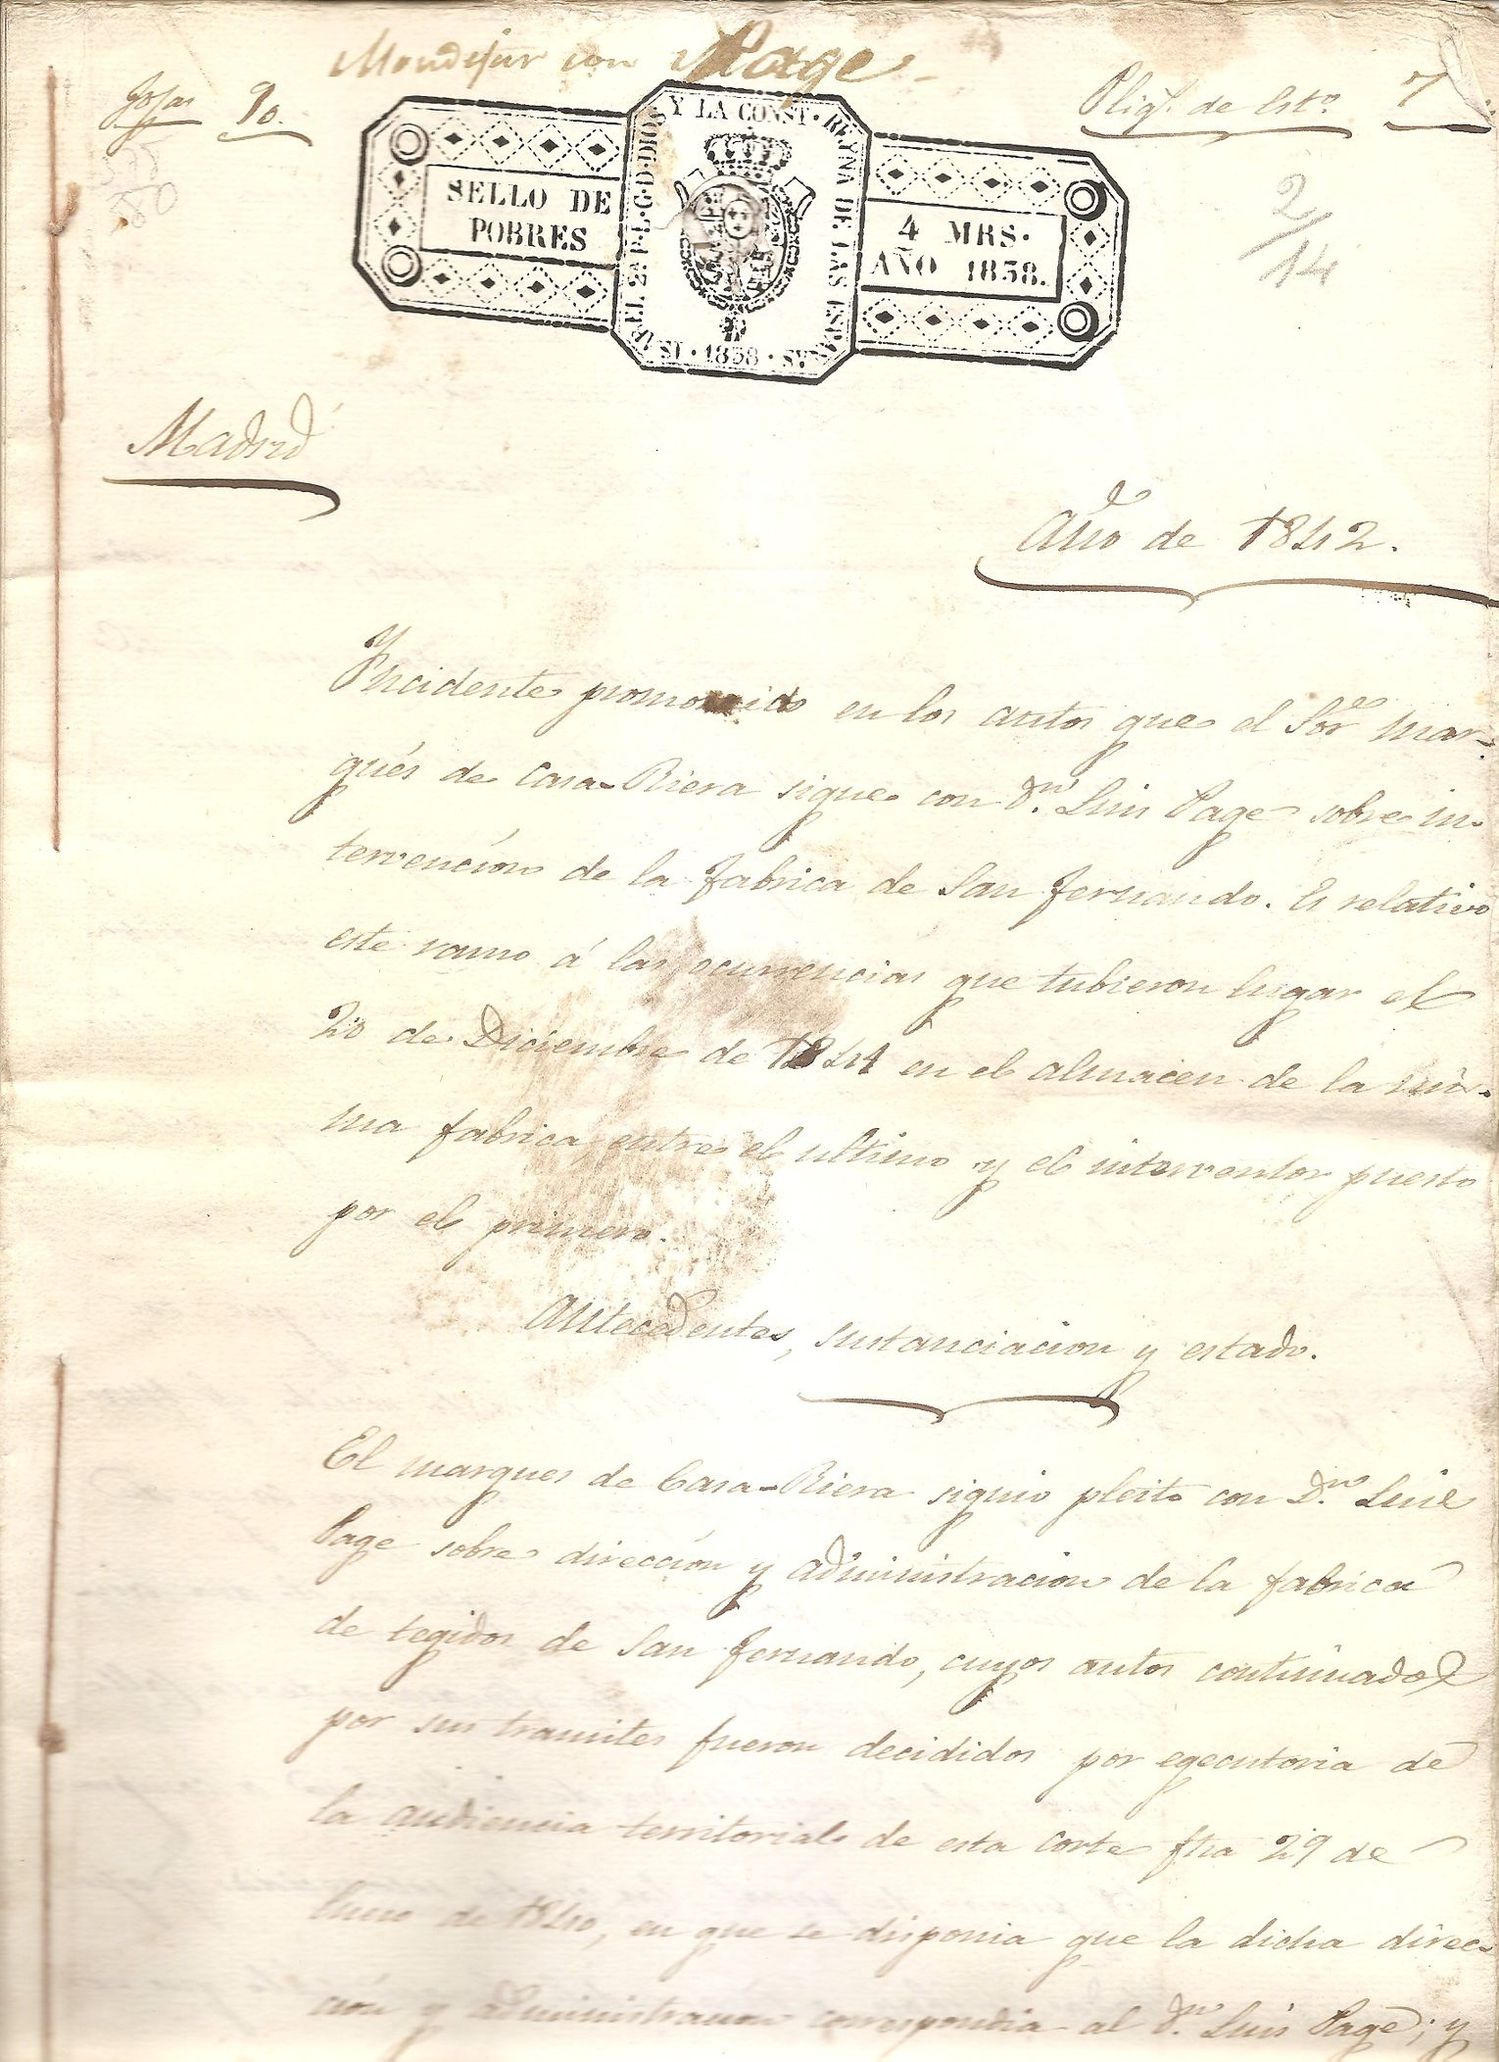 Mondejar con Page
fojas 90.
Plieg.s de Est.o 7
SELLO DE
POBRES
ISABEL 2ª P.L.G.D.DIOS Y LA CONST. REYNA DE LAS ESPAÑAS
1838
4 MRS.
AÑO 1838.
2/14
Madrid
Año de 1842.
Incidente promovido en los autos que el Sor. Mar-
qués de Casa-Riera sigue con D.n Luis Page sobre in-
tervención de la fabrica de San Fernando. Es relativo
este ramo á las ocurrencias que tubieron lugar el
20 de Diciembre de 1841 en el almacen de la mis-
ma fabrica entre el ultimo y el interventor puesto
por el primero.
Antecedentes, sustanciacion y estado.
El marques de Casa-Riera siguio pleito con D.n Luis
Page sobre dirección y administracion de la fabrica
de tegidos de San Fernando, cuyos autos continuados
por sus tramites fueron decididos por egecutoria de
la audiencia territorial de esta corte fha 29 de
de 1840, en que se disponia que la dicha direc-
ción y administracion correspondia al D.n Luis Page; y